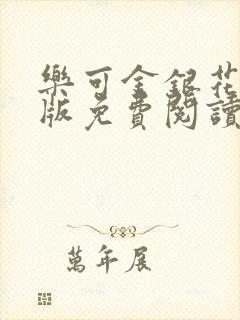 樂可金銀花
版免費閱讀
萬年展